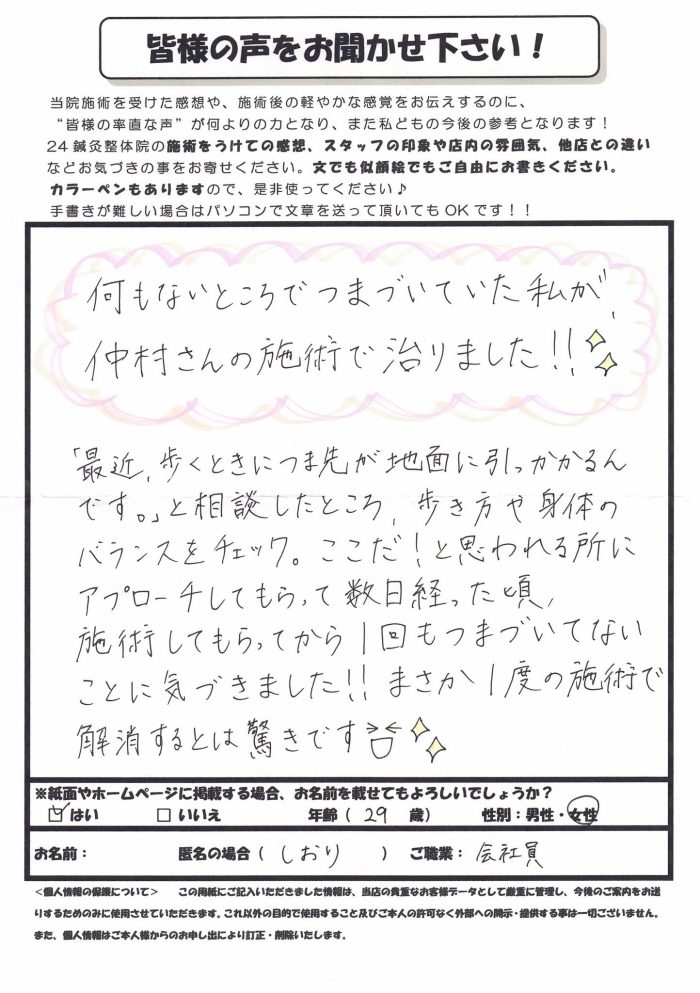 皆様の声をお聞かせ下さい!
当院施術を受けた感想や、施術後の軽やかな感覚をお伝えするのに、
“皆様の率直な声”が何よりの力となり、また私どもの今後の参考となります!
24鍼灸整体院の施術をうけての感想、スタッフの印象や店内の雰囲気、他店との違い
などお気づきの事をお寄せください。文でも似顔絵でもご自由にお書きください。
カラーペンもありますので、是非使ってください♪
手書きが難しい場合はパソコンで文章を送って頂いてもOKです!!
何もないところでつまづいていた私が、
仲村さんの施術で治りました!!
「最近、歩くときにつま先が地面に引っかかるん
です。」と相談したところ、歩き方や身体の
バランスをチェック。ここだ!と思われる所に
アプローチしてもらって数日経った頃、
施術してもらってから1回もつまづいてない
ことに気づきました!!まさか1度の施術で
解消するとは驚きです
※紙面やホームページに掲載する場合、お名前を載せてもよろしいでしょうか?
はい いいえ 年齢(29 歳) 性別:男性・女性
お名前: 匿名の場合(しおり) ご職業:会社員
<個人情報の保護について> この用紙にご記入いただきました情報は、当店の貴重なお客様データとして厳重に管理し、今後のご案内をお送
りするためのみに使用させていただきます。これ以外の目的で使用すること及びご本人の許可なく外部への開示・提供する事は一切ございません。
また、個人情報はご本人様からのお申し出により訂正・削除いたします。